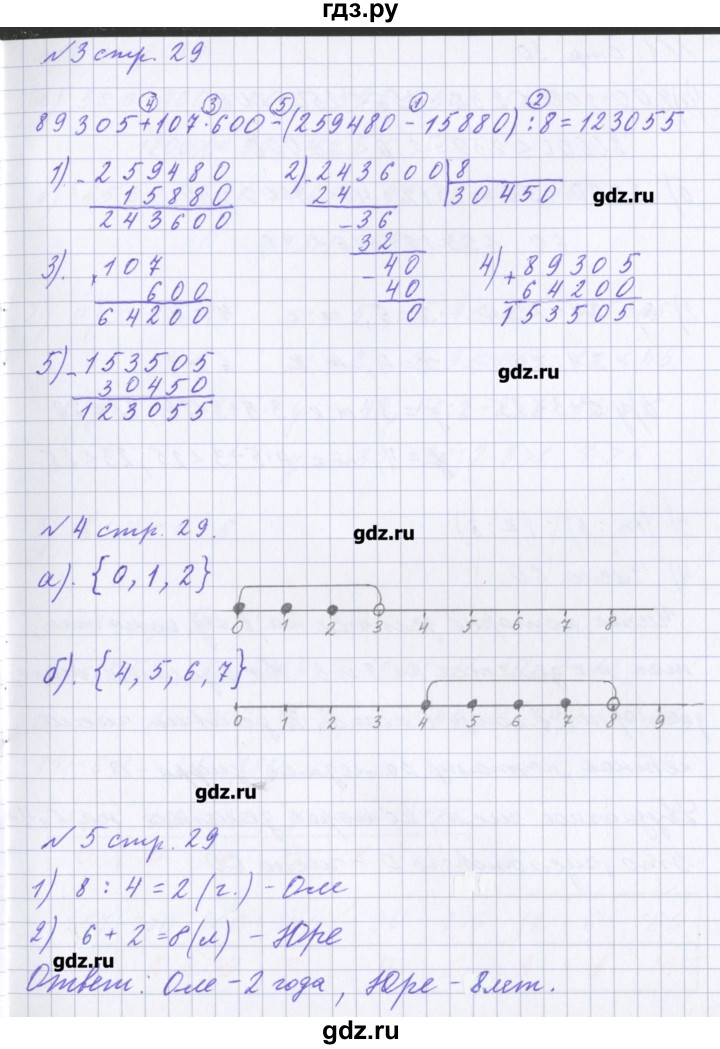 гдз.ру
№3 стр. 29
④ ③ ⑤ ① ②
89305+107·600-(259480-15880):8=123055
1) - 259480
15880
243600
2) - 243600 | 8
24 30450
- 36
32
- 40
40
0
gdz.ru
3). × 107
600
64200
4) + 89305
64200
153505
5) - 153505
30450
123055
gdz.ru
№4 стр. 29.
gdz.ru
а). {0, 1, 2}
0 1 2 3 4 5 6 7 8
б). {4, 5, 6, 7}
0 1 2 3 4 5 6 7 8 9
gdz.ru
№5 стр. 29
1) 8 : 4 = 2 (г.) - Оле
2) 6 + 2 = 8 (л) - Юре
gdz.ru
Ответ: Оле - 2 года, Юре - 8 лет.
gdz.ru